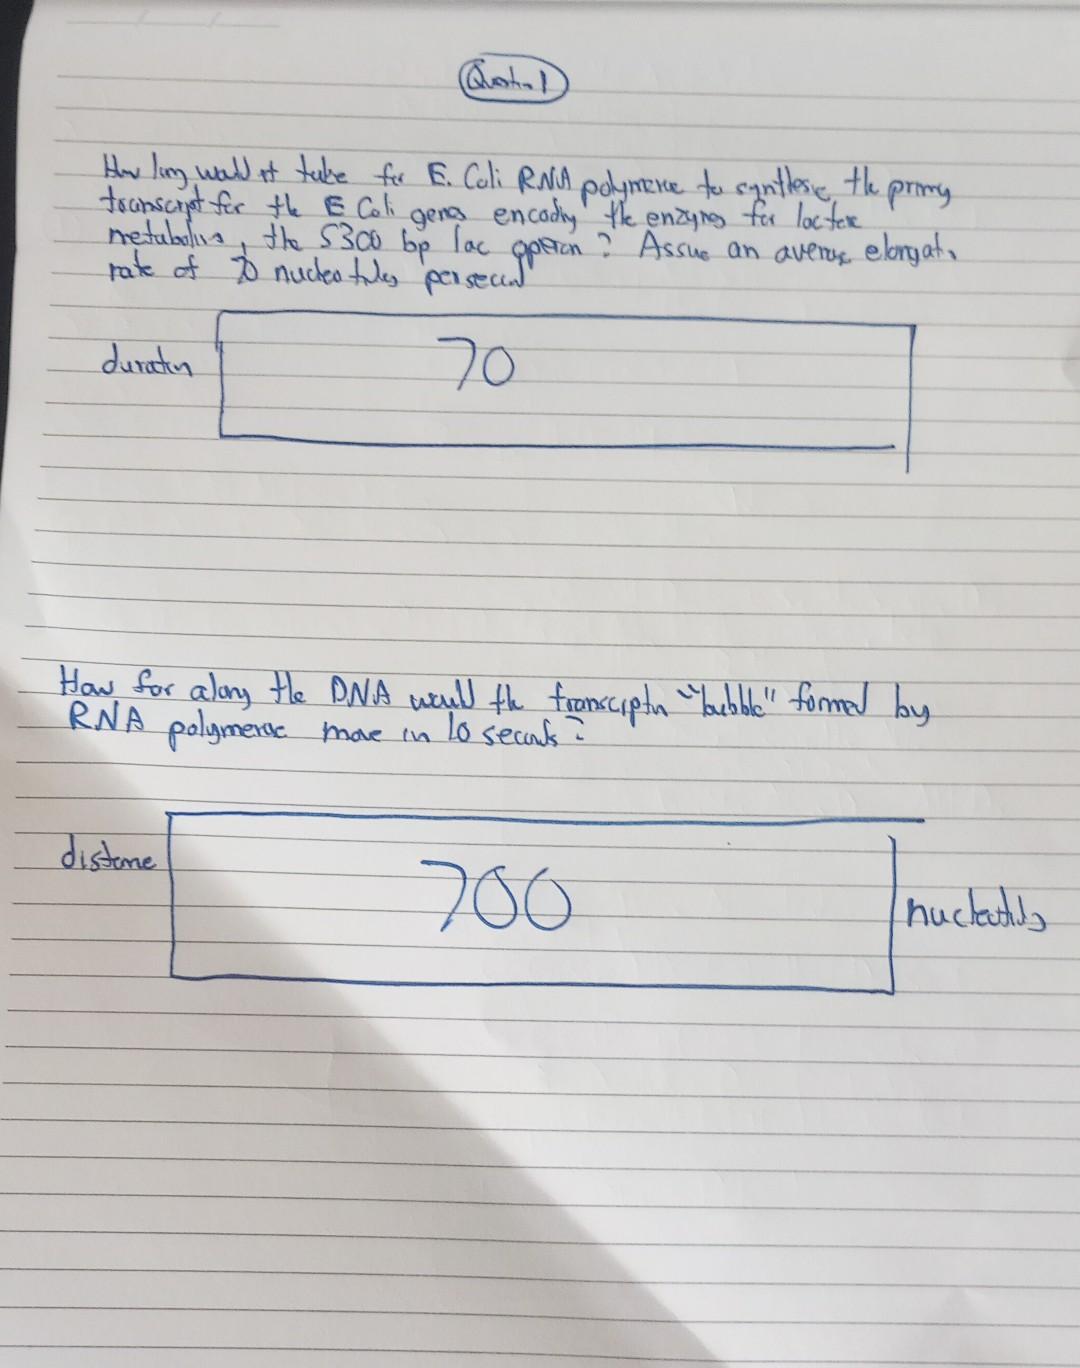 Question 1
How long would it take for E. Coli RNA polymerase to synthesize the primary
transcript for the E Coli genes encoding the enzymes for lactose
metabolism, the 5300 bp lac operon? Assume an average elongation
rate of 70 nucleotides per second
duration
70
How far along the DNA would the transcription "bubble" formed by
RNA polymerase move in 10 seconds?
distance
700
nucleotides